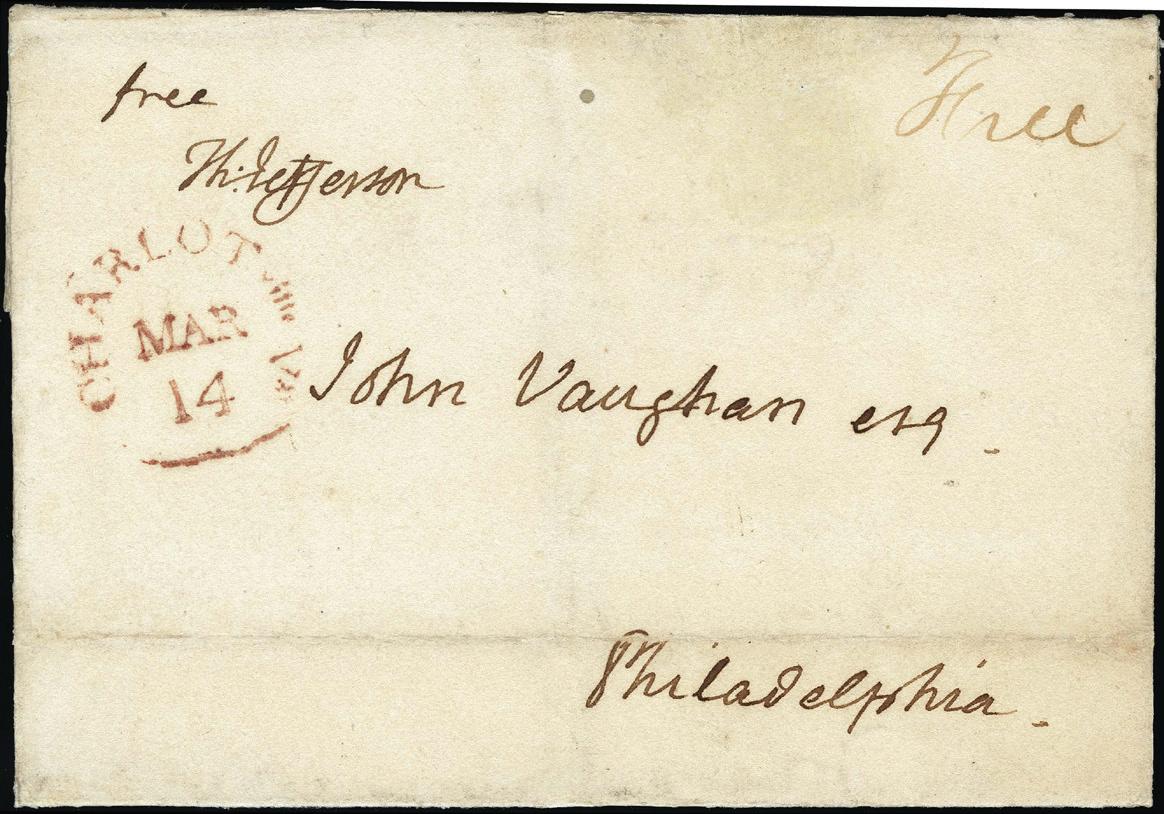 free
Free
Th: Jefferson
CHARLOT
VA
MAR
14
John Vaughan esq.
Philadelphia.